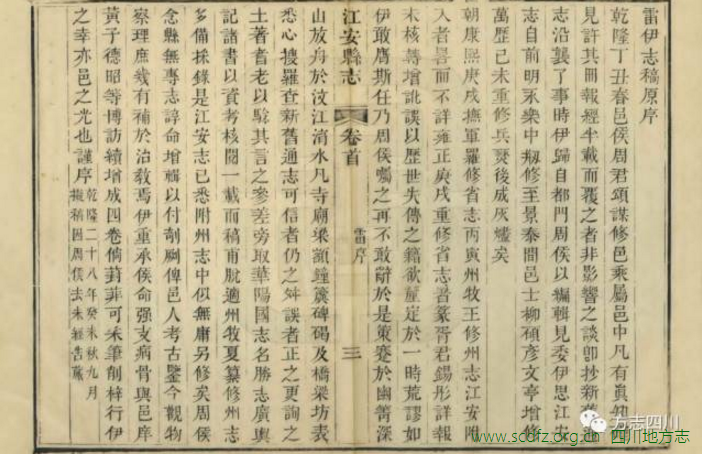 雷伊志稿原序
乾隆丁丑春邑侯周君頌謀修邑乘屬邑中凡有眞知
見許其冊報經半載而覆之者非影響之談卽抄新舊
志沿襲了事時伊歸自都門周侯以編輯見委伊思江安
志自前明永樂中剏修至景泰間邑士柳碩彥文亭增修
萬歷己未重修兵燹後成灰燼矣
朝康熙庚戌撫軍羅修省志丙寅州牧王修州志江安附
入者畧而不詳雍正庚戌重修省志者篆胥君錫彤詳報
未核等增訛誤以歷世失傳之籍欲釐定於一時荒謬如
伊敢膺斯任乃周侯囑之再不敢辭於是策蹇於幽菁深
雷序
江安縣志
卷首
三
山放舟於汶江淯水凡寺廟梁額鐘簴碑碣及橋梁坊表
悉心搜羅查新舊通志可信者仍之舛誤者正之更詢之
土著耆老以驗其言之參差旁取華陽國志名勝志廣輿
記諸書以資考核閱一載而稿甫脫適州牧夏纂修州志
多備採錄是江安志已悉附州志中似無庸另修矣周侯
念縣無專志諄命增輯以付剞劂俾邑人考古鑒今觀物
察理庶幾有補於治敎焉伊重承侯命强支病骨與邑庠
黃子德昭等博訪續增成四卷倘葑菲可采筆削梓行伊
之幸亦邑之光也謹序
乾隆二十八年癸未秋九月
擬稿因周侯去未經告蕆
方志四川
www.scdfz.org.cn 四川地方志